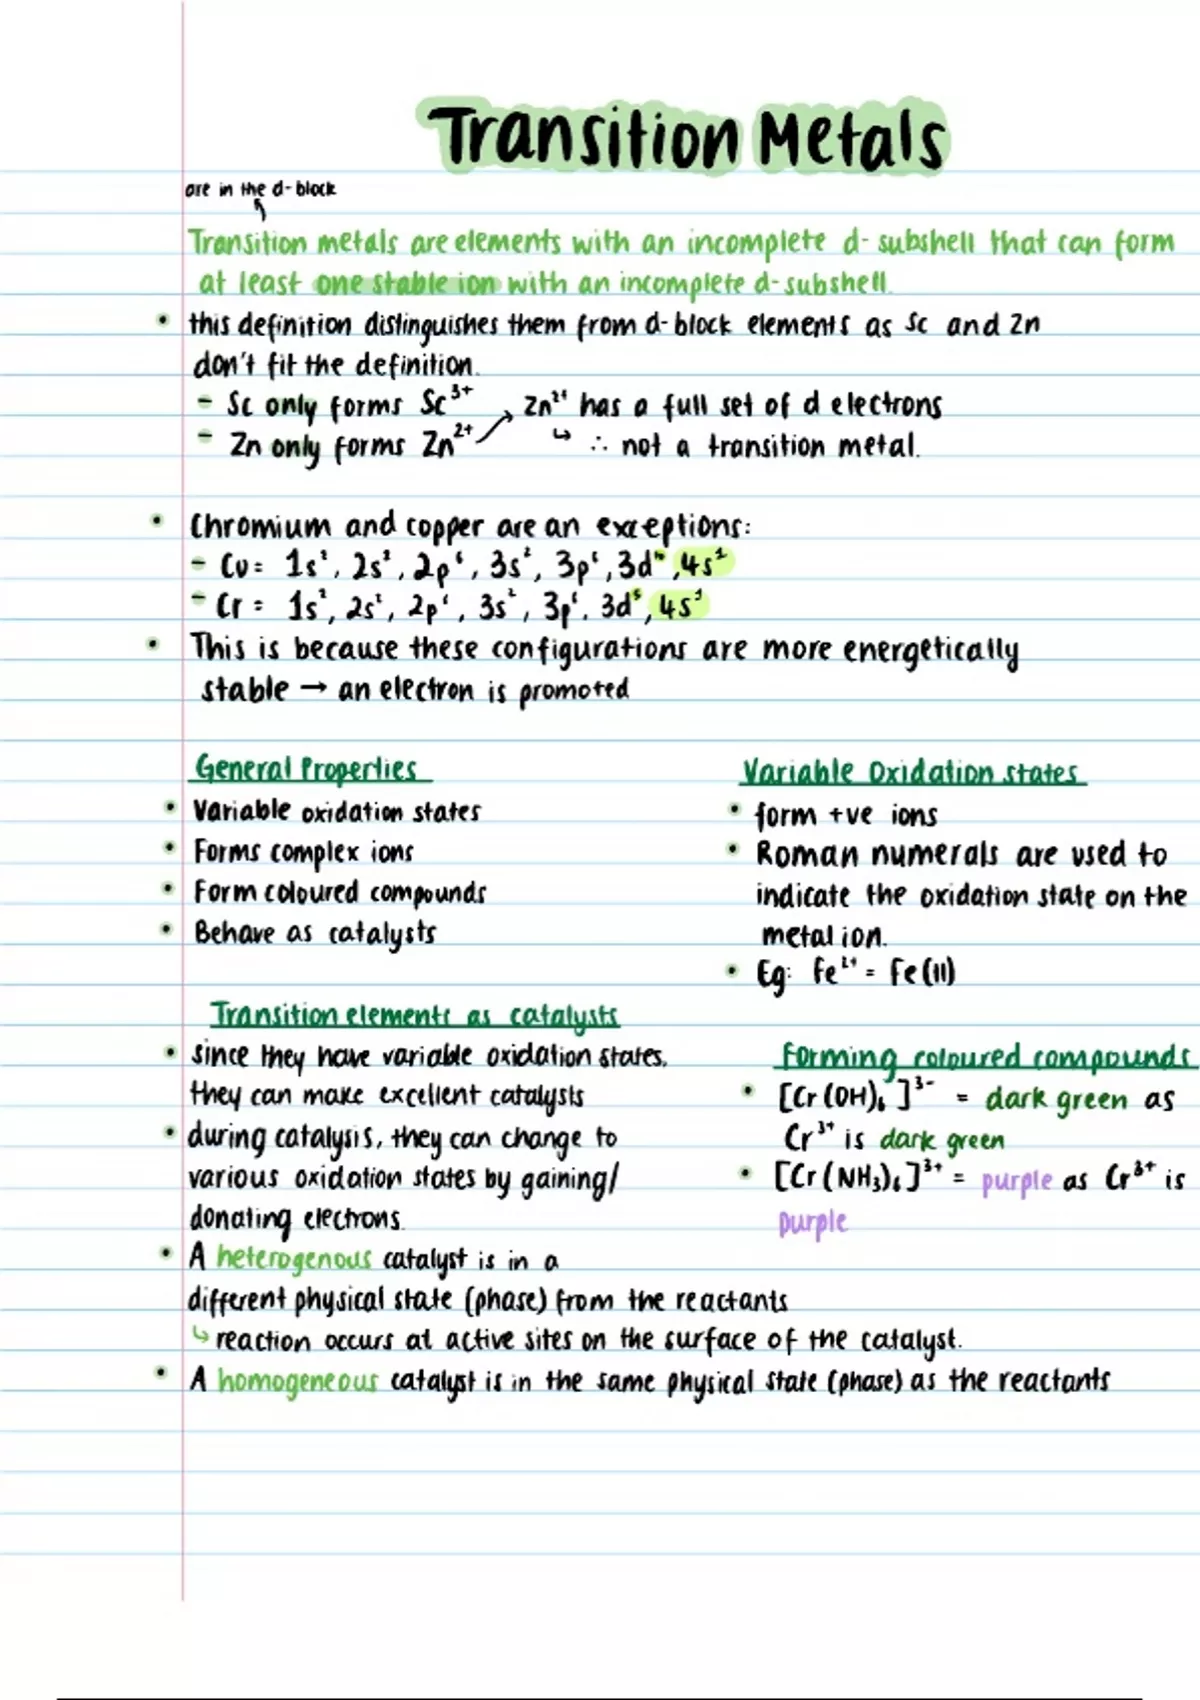 Transition Metals
are in the d-block
Transition metals are elements with an incomplete d-subshell that can form
at least one stable ion with an incomplete d-subshell.
• this definition distinguishes them from d-block elements as Sc and Zn
don't fit the definition.
- Sc only forms Sc³⁺
- Zn only forms Zn²⁺ → Zn²⁺ has a full set of d electrons
↳ ∴ not a transition metal.
• Chromium and copper are an exceptions:
- Cu = 1s², 2s², 2p⁶, 3s², 3p⁶, 3d¹⁰, 4s¹
- Cr = 1s², 2s², 2p⁶, 3s², 3p⁶, 3d⁵, 4s¹
• This is because these configurations are more energetically
stable → an electron is promoted
General Properties
• Variable oxidation states
• Forms complex ions
• Form coloured compounds
• Behave as catalysts
Variable Oxidation states
• form +ve ions
• Roman numerals are used to
indicate the oxidation state on the
metal ion.
• Eg: Fe²⁺ = Fe(II)
Transition elements as catalysts
• since they have variable oxidation states,
they can make excellent catalysts
• during catalysis, they can change to
various oxidation states by gaining/
donating electrons.
• A heterogenous catalyst is in a
different physical state (phase) from the reactants
↳ reaction occurs at active sites on the surface of the catalyst.
• A homogeneous catalyst is in the same physical state (phase) as the reactants
Forming coloured compounds
• [Cr(OH)₆]³⁻ = dark green as
Cr³⁺ is dark green
• [Cr(NH₃)₆]³⁺ = purple as Cr³⁺ is
purple